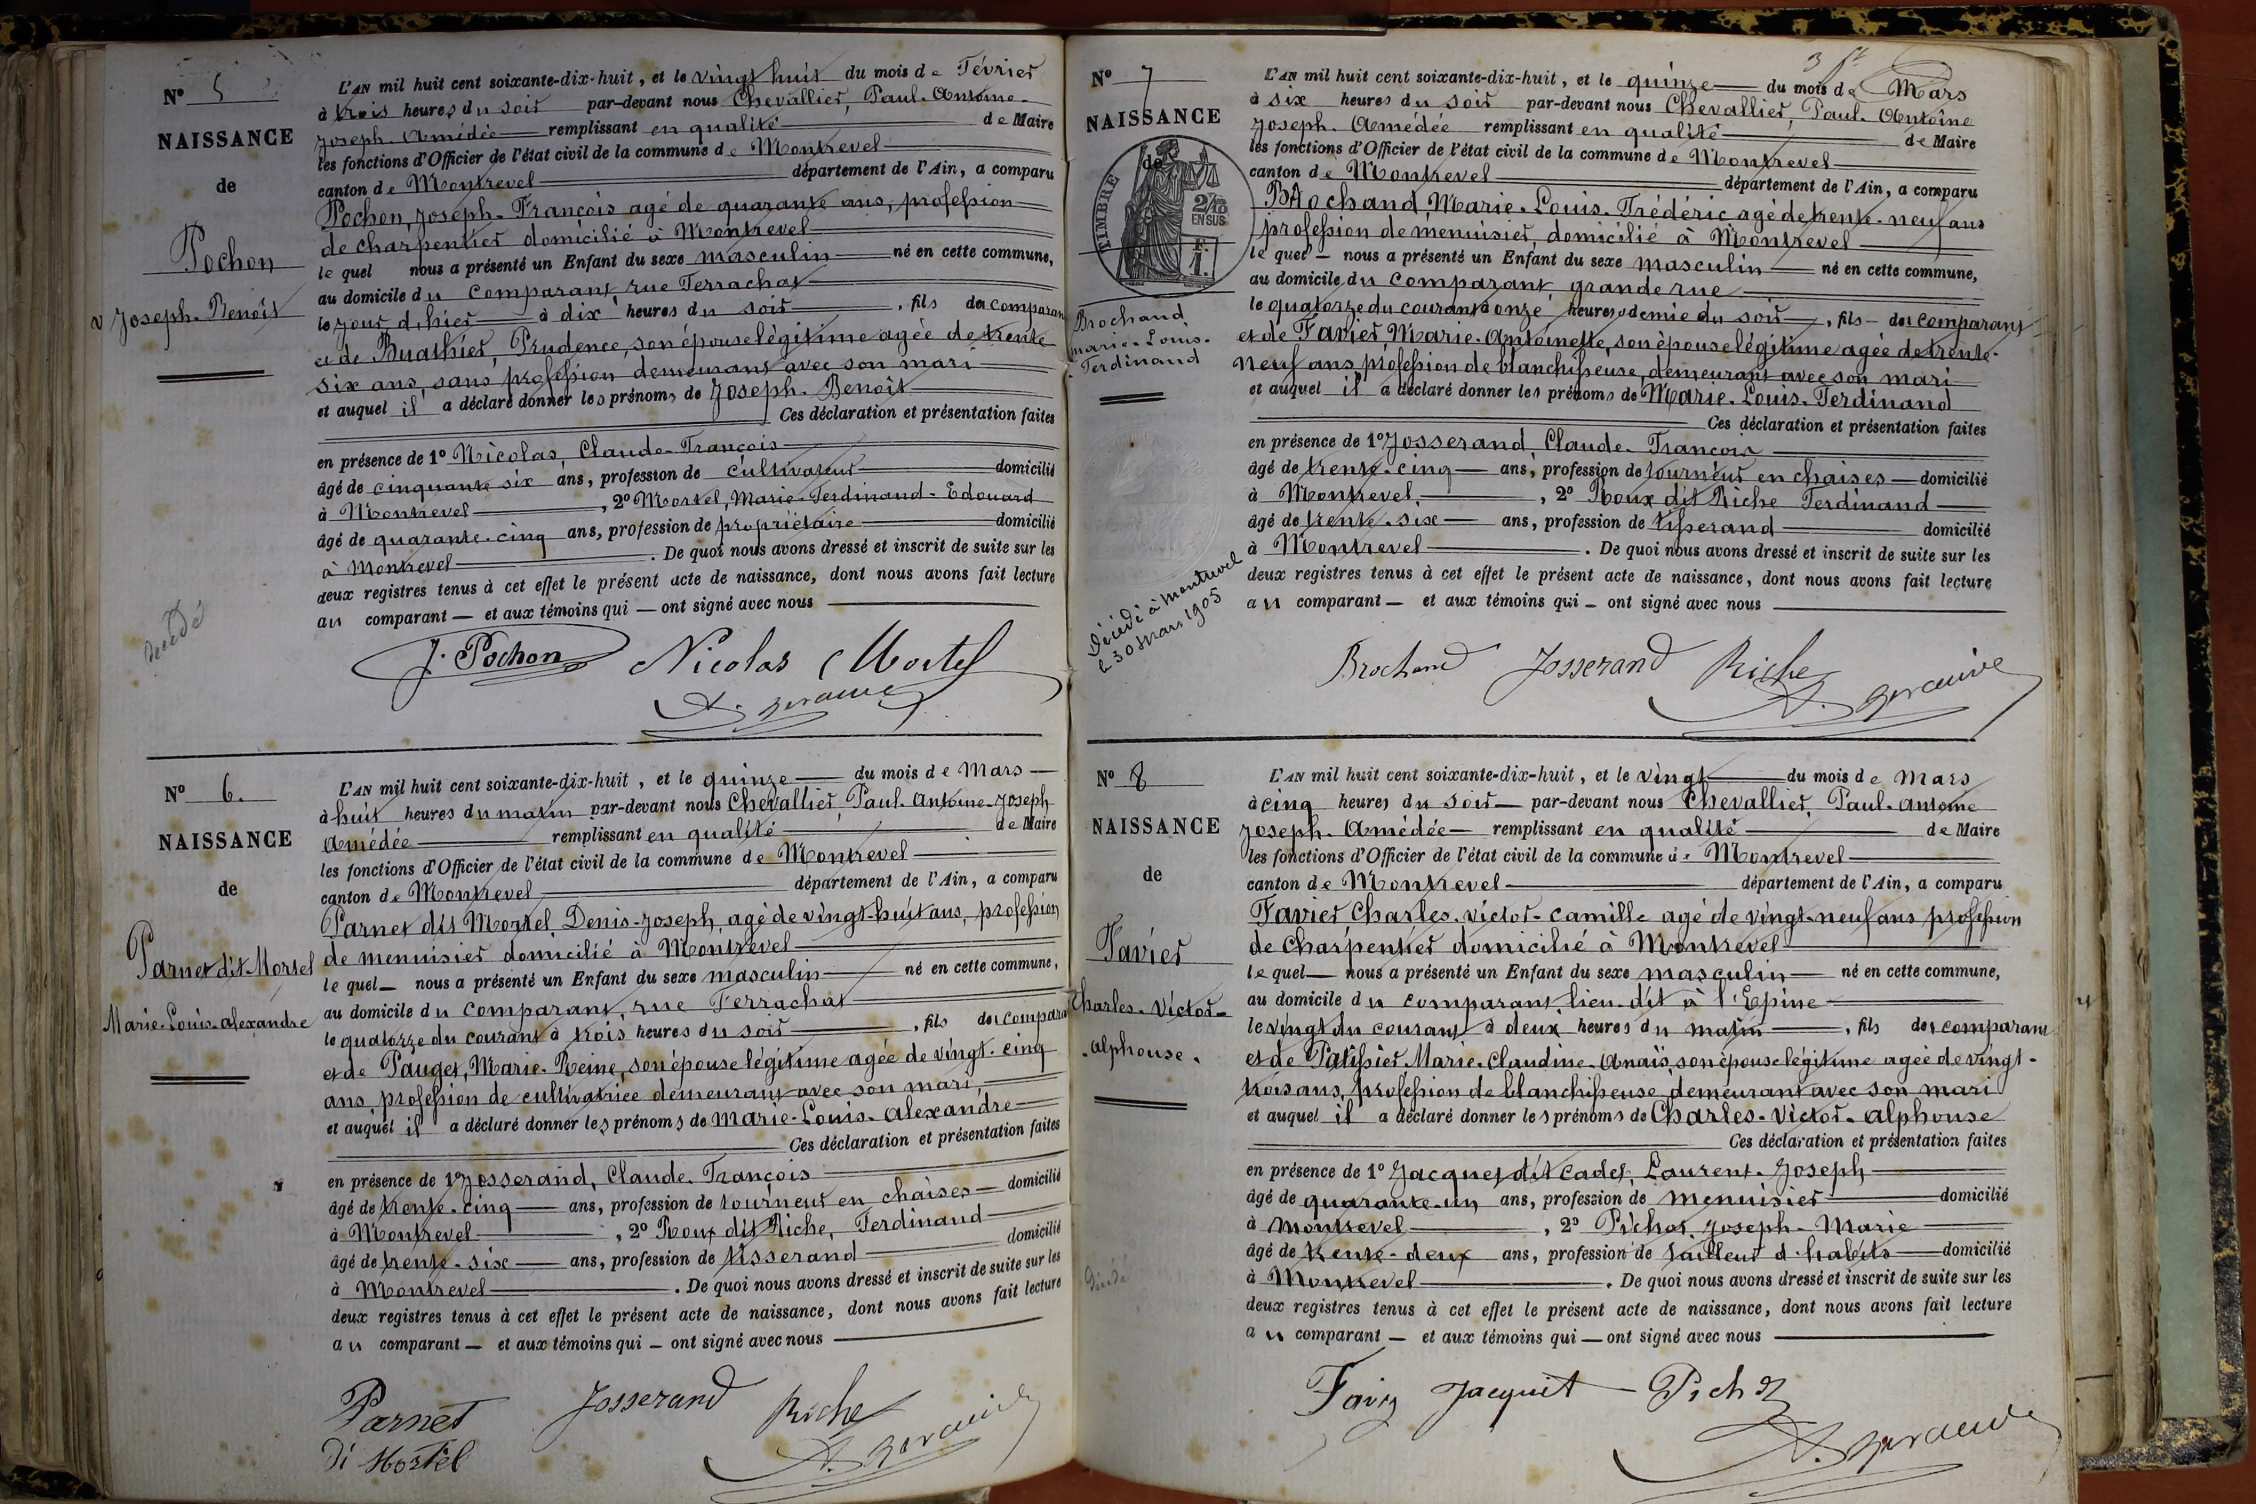 N° 5
NAISSANCE
de
Pochon
Joseph-Benoît
décédé
L'AN mil huit cent soixante-dix-huit, et le vingt huit du mois de Février
à trois heures du soir par-devant nous Chevallier, Paul-Antoine-
Joseph-Amédée remplissant en qualité de Maire
les fonctions d'Officier de l'état civil de la commune de Montrevel
canton de Montrevel département de l'Ain, a comparu
Pochon, Joseph-François agé de quarante ans, profession
de charpentier domicilié à Montrevel
lequel nous a présenté un Enfant du sexe masculin né en cette commune,
au domicile du comparant, rue Ferrachat
le jour d'hier à dix heures du soir, fils du comparant
et de Buathier, Prudence, son épouse légitime agée de trente
six ans, sans profession demeurant avec son mari
et auquel il a déclaré donner les prénoms de Joseph-Benoît
Ces déclaration et présentation faites
en présence de 1° Nicolas, Claude-François
âgé de cinquante six ans, profession de cultivateur domicilié
à Montrevel, 2° Mortel, Marie-Ferdinand-Edouard
âgé de quarante-cinq ans, profession de propriétaire domicilié
à Montrevel. De quoi nous avons dressé et inscrit de suite sur les
deux registres tenus à cet effet le présent acte de naissance, dont nous avons fait lecture
au comparant — et aux témoins qui — ont signé avec nous
J. Pochon Nicolas Mortel
N° 6.
NAISSANCE
de
Parnet dit Mortel
Marie-Louis-Alexandre
L'AN mil huit cent soixante-dix-huit, et le quinze du mois de Mars
à huit heures du matin par-devant nous Chevallier, Paul-Antoine-Joseph
Amédée remplissant en qualité de Maire
les fonctions d'Officier de l'état civil de la commune de Montrevel
canton de Montrevel département de l'Ain, a comparu
Parnet dit Mortel, Denis-Joseph, agé de vingt-huit ans, profession
de menuisier domicilié à Montrevel
lequel — nous a présenté un Enfant du sexe masculin né en cette commune,
au domicile du comparant, rue Ferrachat
le quatorze du courant à trois heures du soir, fils du compara
et de Pauget, Marie-Reine, son épouse légitime agée de vingt-cinq
ans, profession de cultivatrice demeurant avec son mari,
et auquel il a déclaré donner les prénoms de Marie-Louis-Alexandre
Ces déclaration et présentation faites
en présence de 1° Josserand, Claude-François
âgé de trente-cinq ans, profession de tourneur en chaises domicilié
à Montrevel, 2° Roux dit Riche, Ferdinand
âgé de trente-six ans, profession de tisserand domicilié
à Montrevel. De quoi nous avons dressé et inscrit de suite sur les
deux registres tenus à cet effet le présent acte de naissance, dont nous avons fait lecture
au comparant — et aux témoins qui — ont signé avec nous
Parnet Josserand Riche
di Mortel
N° 7
NAISSANCE
de
TIMBRE
2/10
EN SUS
F.
1.
Brochand
Marie-Louis-
Ferdinand
Décédé à Montrevel
le 30 Mars 1905
L'AN mil huit cent soixante-dix-huit, et le quinze du mois de Mars
à six heures du soir par-devant nous Chevallier, Paul-Antoine
Joseph-Amédée remplissant en qualité de Maire
les fonctions d'Officier de l'état civil de la commune de Montrevel
canton de Montrevel département de l'Ain, a comparu
Brochand, Marie-Louis-Frédéric agé de trente-neuf ans
profession de menuisier, domicilié à Montrevel
lequel — nous a présenté un Enfant du sexe masculin né en cette commune,
au domicile du comparant grande rue
le quatorze du courant à onze heures & demie du soir, fils du comparant
et de Favier, Marie-Antoinette, son épouse légitime agée de trente-
neuf ans profession de blanchisseuse, demeurant avec son mari
et auquel il a déclaré donner les prénoms de Marie-Louis-Ferdinand
Ces déclaration et présentation faites
en présence de 1° Josserand, Claude-François
âgé de trente-cinq ans, profession de tourneur en chaises domicilié
à Montrevel, 2° Roux dit Riche Ferdinand
âgé de trente-six ans, profession de tisserand domicilié
à Montrevel. De quoi nous avons dressé et inscrit de suite sur les
deux registres tenus à cet effet le présent acte de naissance, dont nous avons fait lecture
au comparant — et aux témoins qui — ont signé avec nous
Brochand Josserand Riche
N° 8
NAISSANCE
de
Favier
Charles-Victor-
Alphonse.
Décédé
L'AN mil huit cent soixante-dix-huit, et le vingt du mois de Mars
à cinq heures du soir par-devant nous Chevallier, Paul-Antoine
Joseph-Amédée remplissant en qualité de Maire
les fonctions d'Officier de l'état civil de la commune de Montrevel
canton de Montrevel département de l'Ain, a comparu
Favier Charles-Victor-Camille agé de vingt-neuf ans profession
de charpentier domicilié à Montrevel
lequel — nous a présenté un Enfant du sexe masculin né en cette commune,
au domicile du comparant lieu dit à l'Epine
le vingt du courant à deux heures du matin, fils du comparant
et de Patissier Marie-Claudine-Anaïs, son épouse légitime agée de vingt-
trois ans, profession de blanchisseuse demeurant avec son mari
et auquel il a déclaré donner les prénoms de Charles-Victor-Alphonse
Ces déclaration et présentation faites
en présence de 1° Jacquet dit Cadet, Laurent-Joseph
âgé de quarante-un ans, profession de menuisier domicilié
à Montrevel, 2° Pichot, Joseph-Marie
âgé de trente-deux ans, profession de tailleur d'habits domicilié
à Montrevel. De quoi nous avons dressé et inscrit de suite sur les
deux registres tenus à cet effet le présent acte de naissance, dont nous avons fait lecture
au comparant — et aux témoins qui — ont signé avec nous
Favier Jacquet